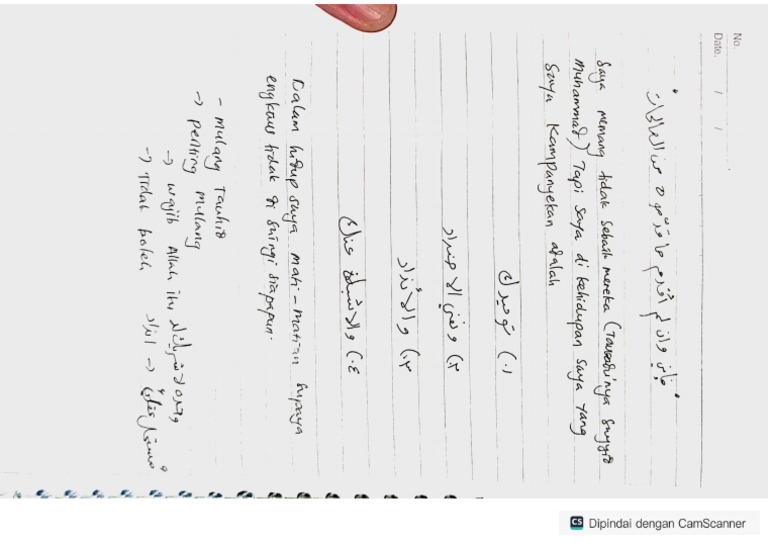 No.
Date. / /
فإني وإن لم أقدم ما قدموه من الصالحات
Saya memang tidak sebaik mereka (Tawasulnya Sayyid
Muhammad) Tapi saya di kehidupan saya yang
saya kampanyekan adalah
١.) توحيدك
٢.) ونفي الاضداد
٣.) والأنداد
٤.) والاشباه عنك
Dalam hidup saya mati-matian supaya
engkau tidak di saingi siapapun.
- mulang Tauhid
-> penting mulang
-> wajib Allah itu وحده لا شريك له
-> Tidak boleh انداد ->
Dipindai dengan CamScanner